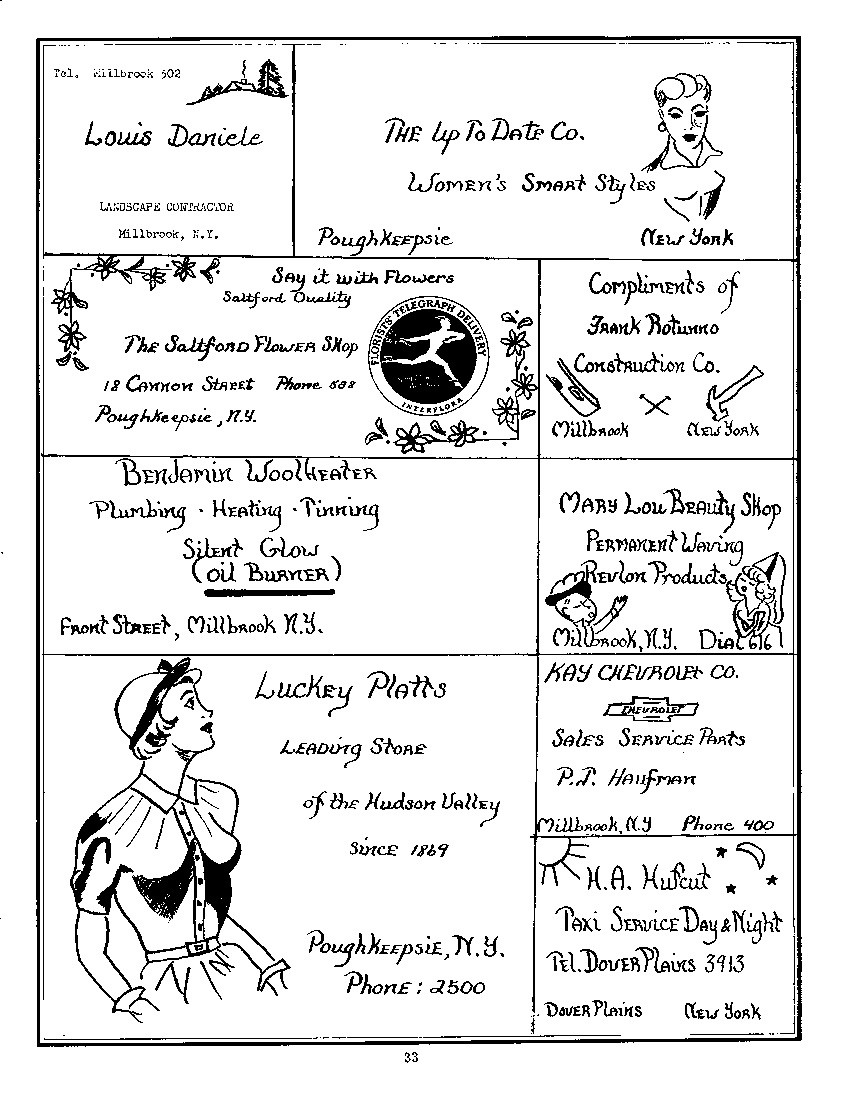 Tel. Millbrook 502
Louis Daniele
LANDSCAPE CONTRACTOR
Millbrook, N.Y.
THE Up To DATE Co.
WOMEN'S SMART Styles
PoughKEEpsie
NEW YORK
SAy it with Flowers
Saltford Quality
THE SaltfoRD FloWER SHop
18 CANNON STREET Phone
PoughKeepsie, N.Y.
FLORISTS' TELEGRAPH DELIVERY
INTERFLORA
Compliments of
FRANK Rotunno
Construction Co.
MillbRook NEW YORK
BENJAMIN WoolHEATER
Plumbing · HEAting · Tinning
SilENt Glow
(oil BURNER)
FRONt STREEt, MillbRook N.Y.
MARY Lou BEAuty SHop
PERMANENT WAVing
REvlon PRoducts
MillbRook, N.Y. DiAl 616
KAY CHEVROLET CO.
CHEVROLET
SALES SERVICE PARTS
P.T. HAufman
MillbRook, N.Y Phone 400
LucKEy PlAtts
LEADING StoRE
of the Hudson VAlley
SINCE 1869
PoughKEEpsiE, N.Y.
PHONE: 2500
H.A. Hufcut
TAXI SERVICE DAy & Night
TEl. DovER PlAiNs 3913
DOVER PlAiNs NEW YORK
33